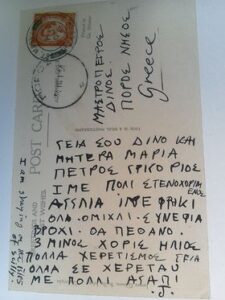 POST CARD
ΜΑΣΤΡΟΠΕΤΡΟΣ
ΔΙΝΟΣ.
ΠΟΡΟΣ ΝΗΣΟΣ
Greece
ΓΕΙΑ ΣΟΥ ΔΙΝΟ ΚΑΙ
ΜΗΤΕΡΑ ΜΑΡΙΑ
ΠΕΤΡΟΣ ΓΡΙΓΟΡΙΟΣ
ΙΜΕ ΠΟΛΙ ΣΤΕΝΟΧΟΡΙΜΕΝΟΣ
ΑΓΓΛΙΑ ΙΜΕ ΦΡΙΚΙ
ΟΛΟ. ΟΜΙΧΛΙ. ΣΥΝΕΦΙΑ
ΒΡΟΧΙ. ΘΑ ΠΕΘΑΝΟ.
3 ΜΙΝΟΣ ΧΟΡΙΣ ΗΛΙΟΣ
ΠΟΛΛΑ ΧΕΡΕΤΙΣΜΟΣ ΓΕΙΑ
ΟΛΑΑ ΣΕ ΧΕΡΕΤΑΥ
ΜΕ ΠΟΛΛΙ ΑΓΑΠΙ
I am staying at